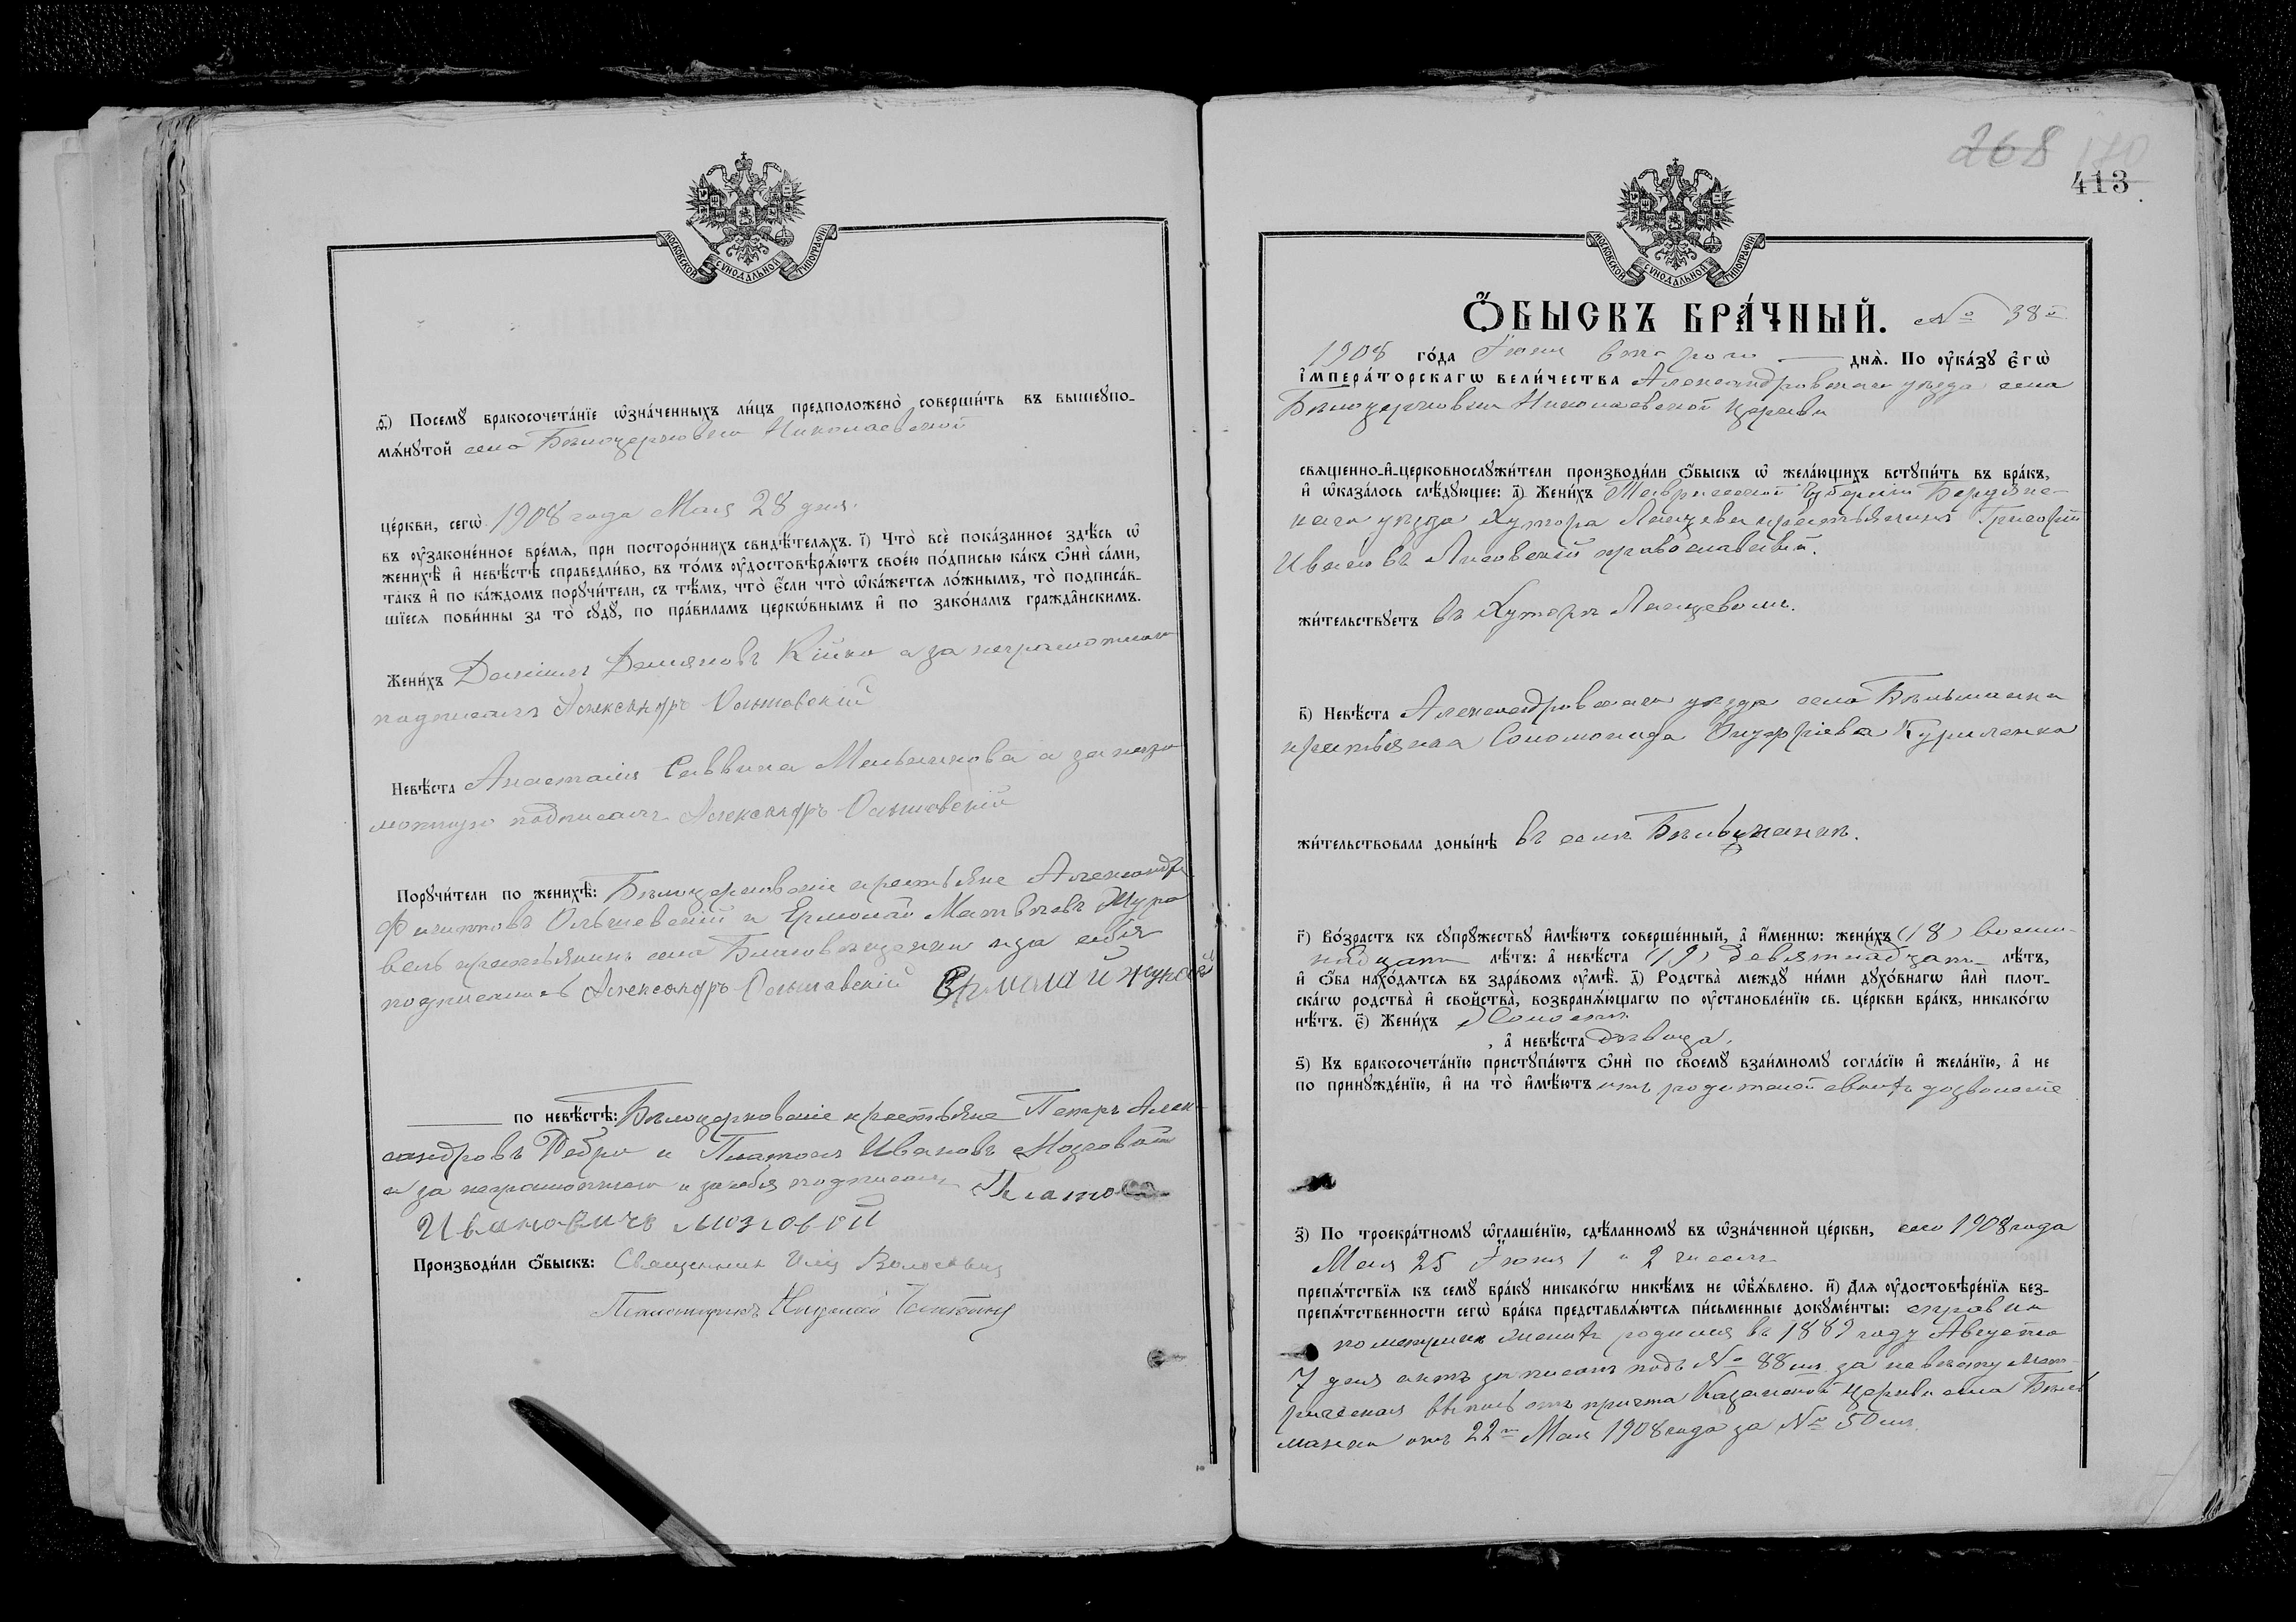 МОСКОВСКОЙ СѴНОДАЛЬНОЙ ТИПОГРАФІИ
ѳ҃) Посемꙋ бракосочета́нїе ѡ҆зна́ченныхъ ли́цъ предположено̀ соверши́ть въ вышеꙋпо-
мѧ́нꙋтой села Бѣлоцерковки Николаевской
це́ркви, сегѡ̀ 1908 года Мая 28 дня.
въ ѹ҆зако́ненное вре́мѧ, при посторо́ннихъ свидѣ́телѧхъ. і҃) Что̀ всѐ пока́занное здѣ́сь ѡ҆
женихѣ̀ и҆ невѣ́стѣ справедли́во, въ то́мъ ѹ҆достовѣрѧ́ютъ свое́ю по́дписью ка́къ ѻ҆нѝ са́ми,
та́къ и҆ по ка́ждомъ порꙋчи́тели, съ тѣ́мъ, что̀ є҆́сли что̀ ѡ҆ка́жетсѧ ло́жнымъ, то̀ подписа́в-
шїесѧ пови́нны за то̀ сꙋдꙋ̀, по пра́виламъ церко́внымъ и҆ по зако́намъ гражда̑нскимъ.
Жени́хъ Даніилъ Демяновъ Кійко а за неграмотнаго
подписалъ Александръ Ольшовскій
Невѣ́ста Анастасія Саввина Мельникова а за негра
мотную подписалъ Александръ Ольшовскій
Порꙋчи́тели по женихѣ̀: Бѣлоцерковскіе крестьяне Александръ
Филиповъ Ольшевскій и Ермолай Матвѣевъ Жура
вель крестьянинъ села Благовѣщенки и за себя
подписались Александръ Ольшавскій Ермолай Журавел
по невѣ́стѣ: Бѣлоцерковскіе крестьяне Петръ Алек-
сандровъ Ребро и Платонъ Ивановъ Мозговой
и за неграмотнаго и за себя подписалъ Плато
Ивановичъ мозговой
Производи́ли ѻ҆́быскъ: Священникъ Илія
Псаломщикъ
268 170
413
МОСКОВСКОЙ СѴНОДАЛЬНОЙ ТИПОГРАФІИ
Ѻ҆́БЫСКЪ БРА́ЧНЫЙ. № 38й
1908 го́да Іюня второго днѧ̀. По ѹ҆ка́зꙋ є҆гѡ̀
і҆мпера́торскагѡ вели́чества Александровскаго уѣзда села
Бѣлоцерковки Николаевской церкви
свѧще́нно-и҆-церковнослꙋжи́тели производи́ли ѻ҆́быскъ ѡ҆ жела́ющихъ встꙋпи́ть въ бра́къ,
и҆ ѡ҆каза́лось слѣ́дꙋющее: а҃) Жени́хъ Таврической Губерніи Бердянс-
каго уѣзда Хутора крестьянинъ Григорій
Ивановъ Лисовскій православный.
жи́тельствꙋетъ въ Хуторѣ
в҃) Невѣ́ста Александровскаго уѣзда села Бѣльманки
крестьянка Соломонида Онуфріева Куриленко
жи́тельствовала доны́нѣ въ селѣ Бѣльманкѣ.
г҃) Во́зрастъ къ сꙋпрꙋ́жествꙋ и҆мѣ́ютъ соверше́нный, а҆ и҆́менно: жени́хъ (18) восем-
надцать лѣ́тъ: а҆ невѣ́ста (19) девятнадцать лѣ́тъ,
и҆ ѻ҆́ба нахо́дѧтсѧ въ здра́вомъ ѹ҆мѣ̀. д҃) Родства̀ междꙋ̀ ни́ми дꙋхо́внагѡ и҆лѝ плот-
ска́гѡ родства̀ и҆ сво́йства̀, возбранѧ́ющагѡ по ѹ҆становле́нїю св. це́ркви бра́къ, никако́гѡ
нѣ́тъ. є҃) Жени́хъ холостъ
, а҆ невѣ́ста дѣвица.
ѕ҃) Къ бракосочета́нїю пристꙋпа́ютъ ѻ҆нѝ по своемꙋ̀ взаи́мномꙋ согла́сїю и҆ жела́нїю, а҆ не
по принꙋжде́нїю, и҆ на то̀ и҆мѣ́ютъ отъ родителей своихъ дозволеніе
з҃) По троекра́тномꙋ ѡ҆глаше́нїю, сдѣ́ланномꙋ въ ѡ҆зна́ченной це́ркви, сего 1908 года
Мая 25 Іюня 1 и 2 чиселъ
препѧ́тствїѧ къ семꙋ̀ бра́кꙋ никако́гѡ никѣ́мъ не ѡ҆б̾ѧ́влено. и҃) Для ѹ҆достовѣре́нїѧ без-
препѧ́тственности сегѡ̀ бра́ка представлѧ́ютсѧ пи́сьменные докꙋме́нты: справка
по метрикѣ женихъ родился въ 1889 году Августа
7 дня актъ записанъ подъ № 88мъ за невѣсту мет-
рическая выпись отъ причта Казанской церкви села Бѣль
манки отъ 22го Мая 1908 года за № 50мъ